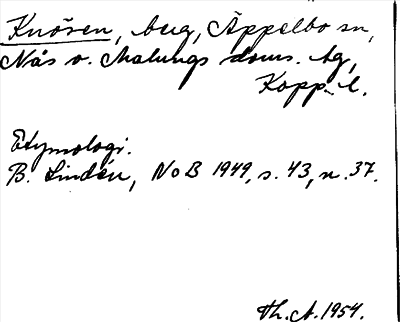 Knösen, berg, Äppelbo sn,
Nås o. Malungs doms. hg,
Kopp. l.
Etymologi.
B. Lindén, NoB 1949, s. 43, n. 37.
Th. A. 1954.